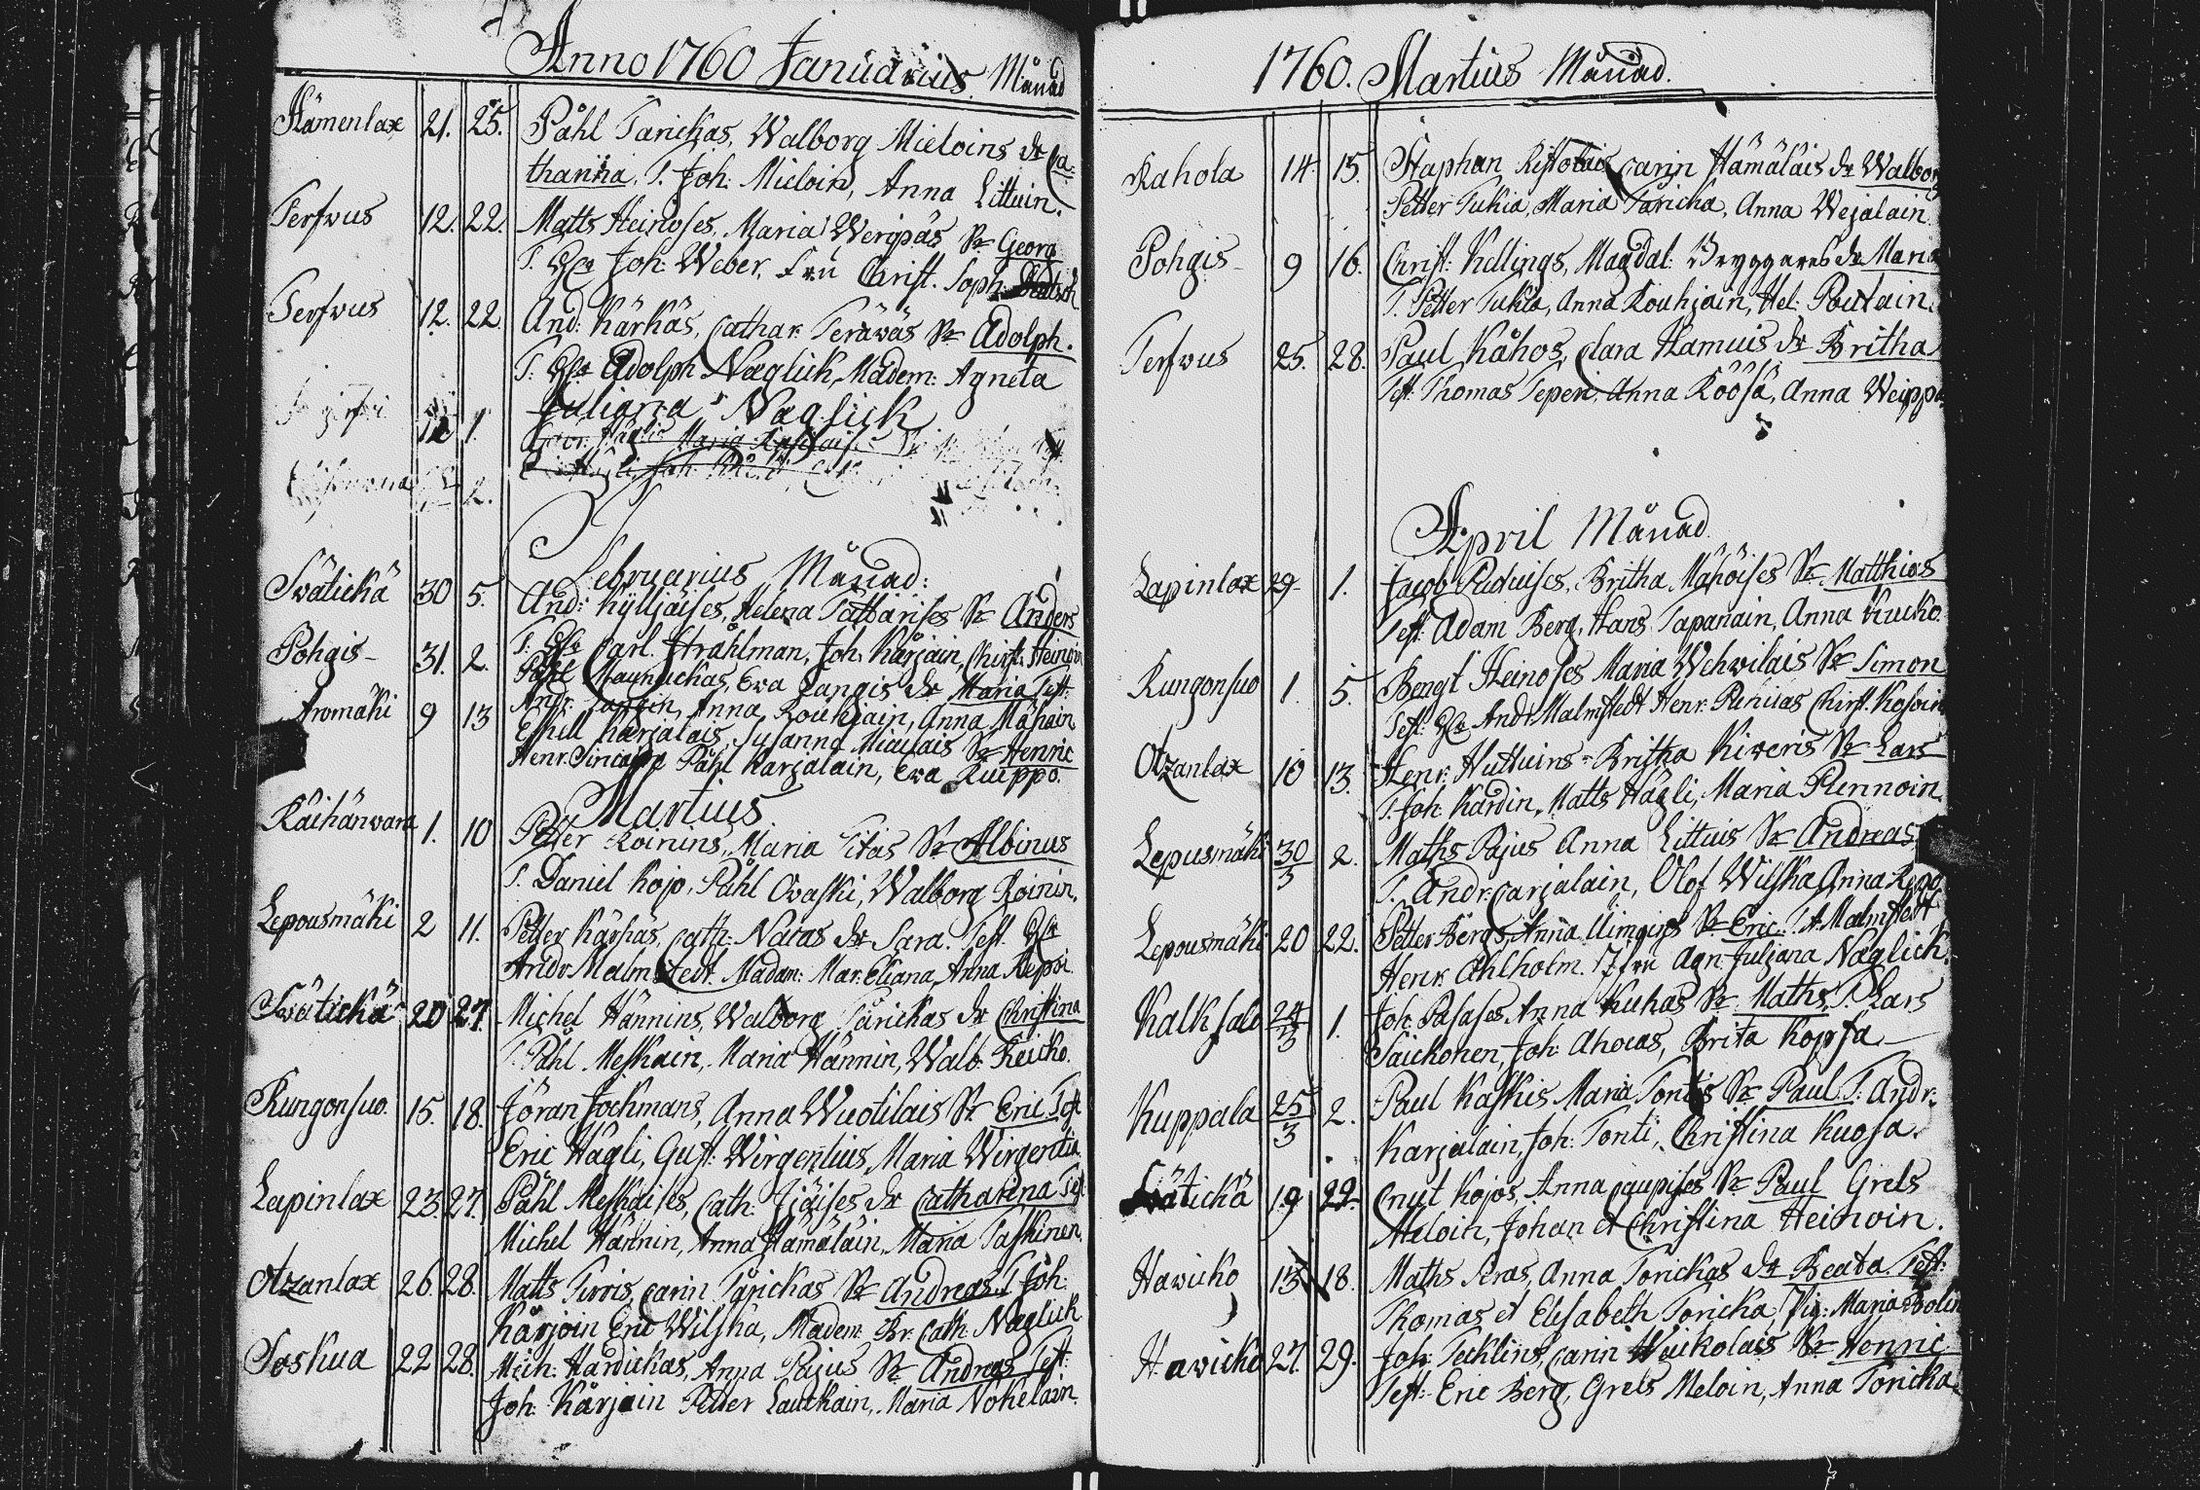 Anno 1760 Januarius Månad
Hämenlax 21. 25. Påhl Tarickas, Walborg Mieloins dr Ca-
tharina, T. Joh: Mieloin, Anna Littuin.
Terfwus 12. 22. Matts Heinoses, Maria Weripäs Sr Georg
T. Joh: Weber, Fru Christ. Soph:
Terfwus 12. 22. And: Kärkäs, Cathar. Teräwäs Sr Adolph.
T: Hr Adolph Næglick, Madem: Agneta
Juliana Naglick
12 1.
2.
Februarius Månad:
Swätickä 30 5. And: Kylljäises, Helena Tattarises Sr Anders
T. Hr Carl. Stråhlman, Joh: Kärjain, Christ: Heinoin
Pohgis 31. 2. Påhl Maunuckas, Ewa Langis dr Maria Test:
Andr: Langin, Anna Rouhjain, Anna Mähöin
Aromäki 9 13 Eskill Karjalais, Susanna Miculais Sr Henric
Henr. Sincaipe Påhl Karjalain, Ewa Kuippo.
Martius
Käihänwara 1. 10 Petter Roinins, Maria Titas Sr Albinus
T. Daniel Kojo, Påhl Owaski, Walborg Roinin.
Lepousmäki 2 11. Petter Kärhäs, Cath: Natas dr Sara. Test. Hr
Andr Malmstedt. Madam: Mar. Eliana, Anna Repoi
Swätickä 20 27. Michel Hännins, Walborg Tårickas dr Christina
T. Påhl Meskain, Maria Hännin, Walb: Keucko.
Rungonsuo. 15. 18. Jöran Jochmans, Anna Wuotilais Sr Eric Test
Eric Hägli, Gust: Wirgentius, Maria Wirgentia
Lapinlax 23. 27. Påhl Meskaises, Cath: Ijäises dr Catharina Test
Michel Hännin, Anna Hämäläin, Maria Taskinen.
Otzanlax 26. 28. Matts Turois, Carin Tårickas Sr Andreas T Joh:
Kärjoin Eric Wilska, Madem. Br: Cath: Næglick
Toskua 22 28. Mich: Hardickas, Anna Pajus Sr Andreas Test:
Joh: Kärjain Petter Lautkain, Maria Nohelain.
1760. Martius Månad.
Rahola 14. 15. Staphan Ristolais, Carin Hämäläis dr Walborg
Petter Tukia, Maria Taricka, Anna Wejalain.
Pohgis 9 16. Christ: Kellings, Magdal: Bryggares dr Maria
T. Petter Tukia, Anna Rouhjain, Hel: Poutain.
Terfwus 25. 28. Paul Kåhos, Clara Hamuis dr Britha
Test: Thomas Teperi, Anna Köösä, Anna Weippa
April Månad.
Lapinlax 29 1. Jacob Puduises, Britha Mähöises Sr Matthias
Test: Adam Berg, Hans Tapanain, Anna Kucko.
Rungonsuo 1. 5. Bengt Heinoses Maria Wehwilais Sr Simon
Test. Hr Andr Malmstedt Henr. Punuas Christ. Kosoin
Otzanlax 10 13. Henr: Huttuins Britha Kiweris Sr Lars
T. Joh: Kardin, Matts Hägli, Maria Rennoin.
Lepusmäki 30/3 2. Maths Pajus Anna Littuis Sr Andreas
T. Andr: Carjalain, Olof Wilska Anna Repo
Lepousmäki 20 22. Petter Bergs, Anna Uimoins Sr Eric. T. A. Malmstedt
Henr. Ahlholm. Jfru Agn: Juliana Næglick.
Kalksalo 24/3 1. Joh: Pasases Anna Kuhas Sr Maths T. Lars
Saickonen, Joh: Ahocas, Brita Kopsa
Kuppala 25/3 2. Paul Kaskis Maria Tontis Sr Paul T. Andr:
Karjalain, Joh: Tonti, Christina Kuosa.
Swätickä 19 22. Cnut Kojos, Anna Caupises Sr Paul Grels
Meloin, Johan et Christina Heinoin.
Hawicko 13 18. Maths Peras, Anna Torickas dr Beata Test:
Thomas et Elisabeth Toricka, Pig: Maria Bolin
Hawicko 27. 29. Joh: Tecklins, Carin Waikolais Sr Henric
Test: Eric Berg, Grels Meloin, Anna Toricka,